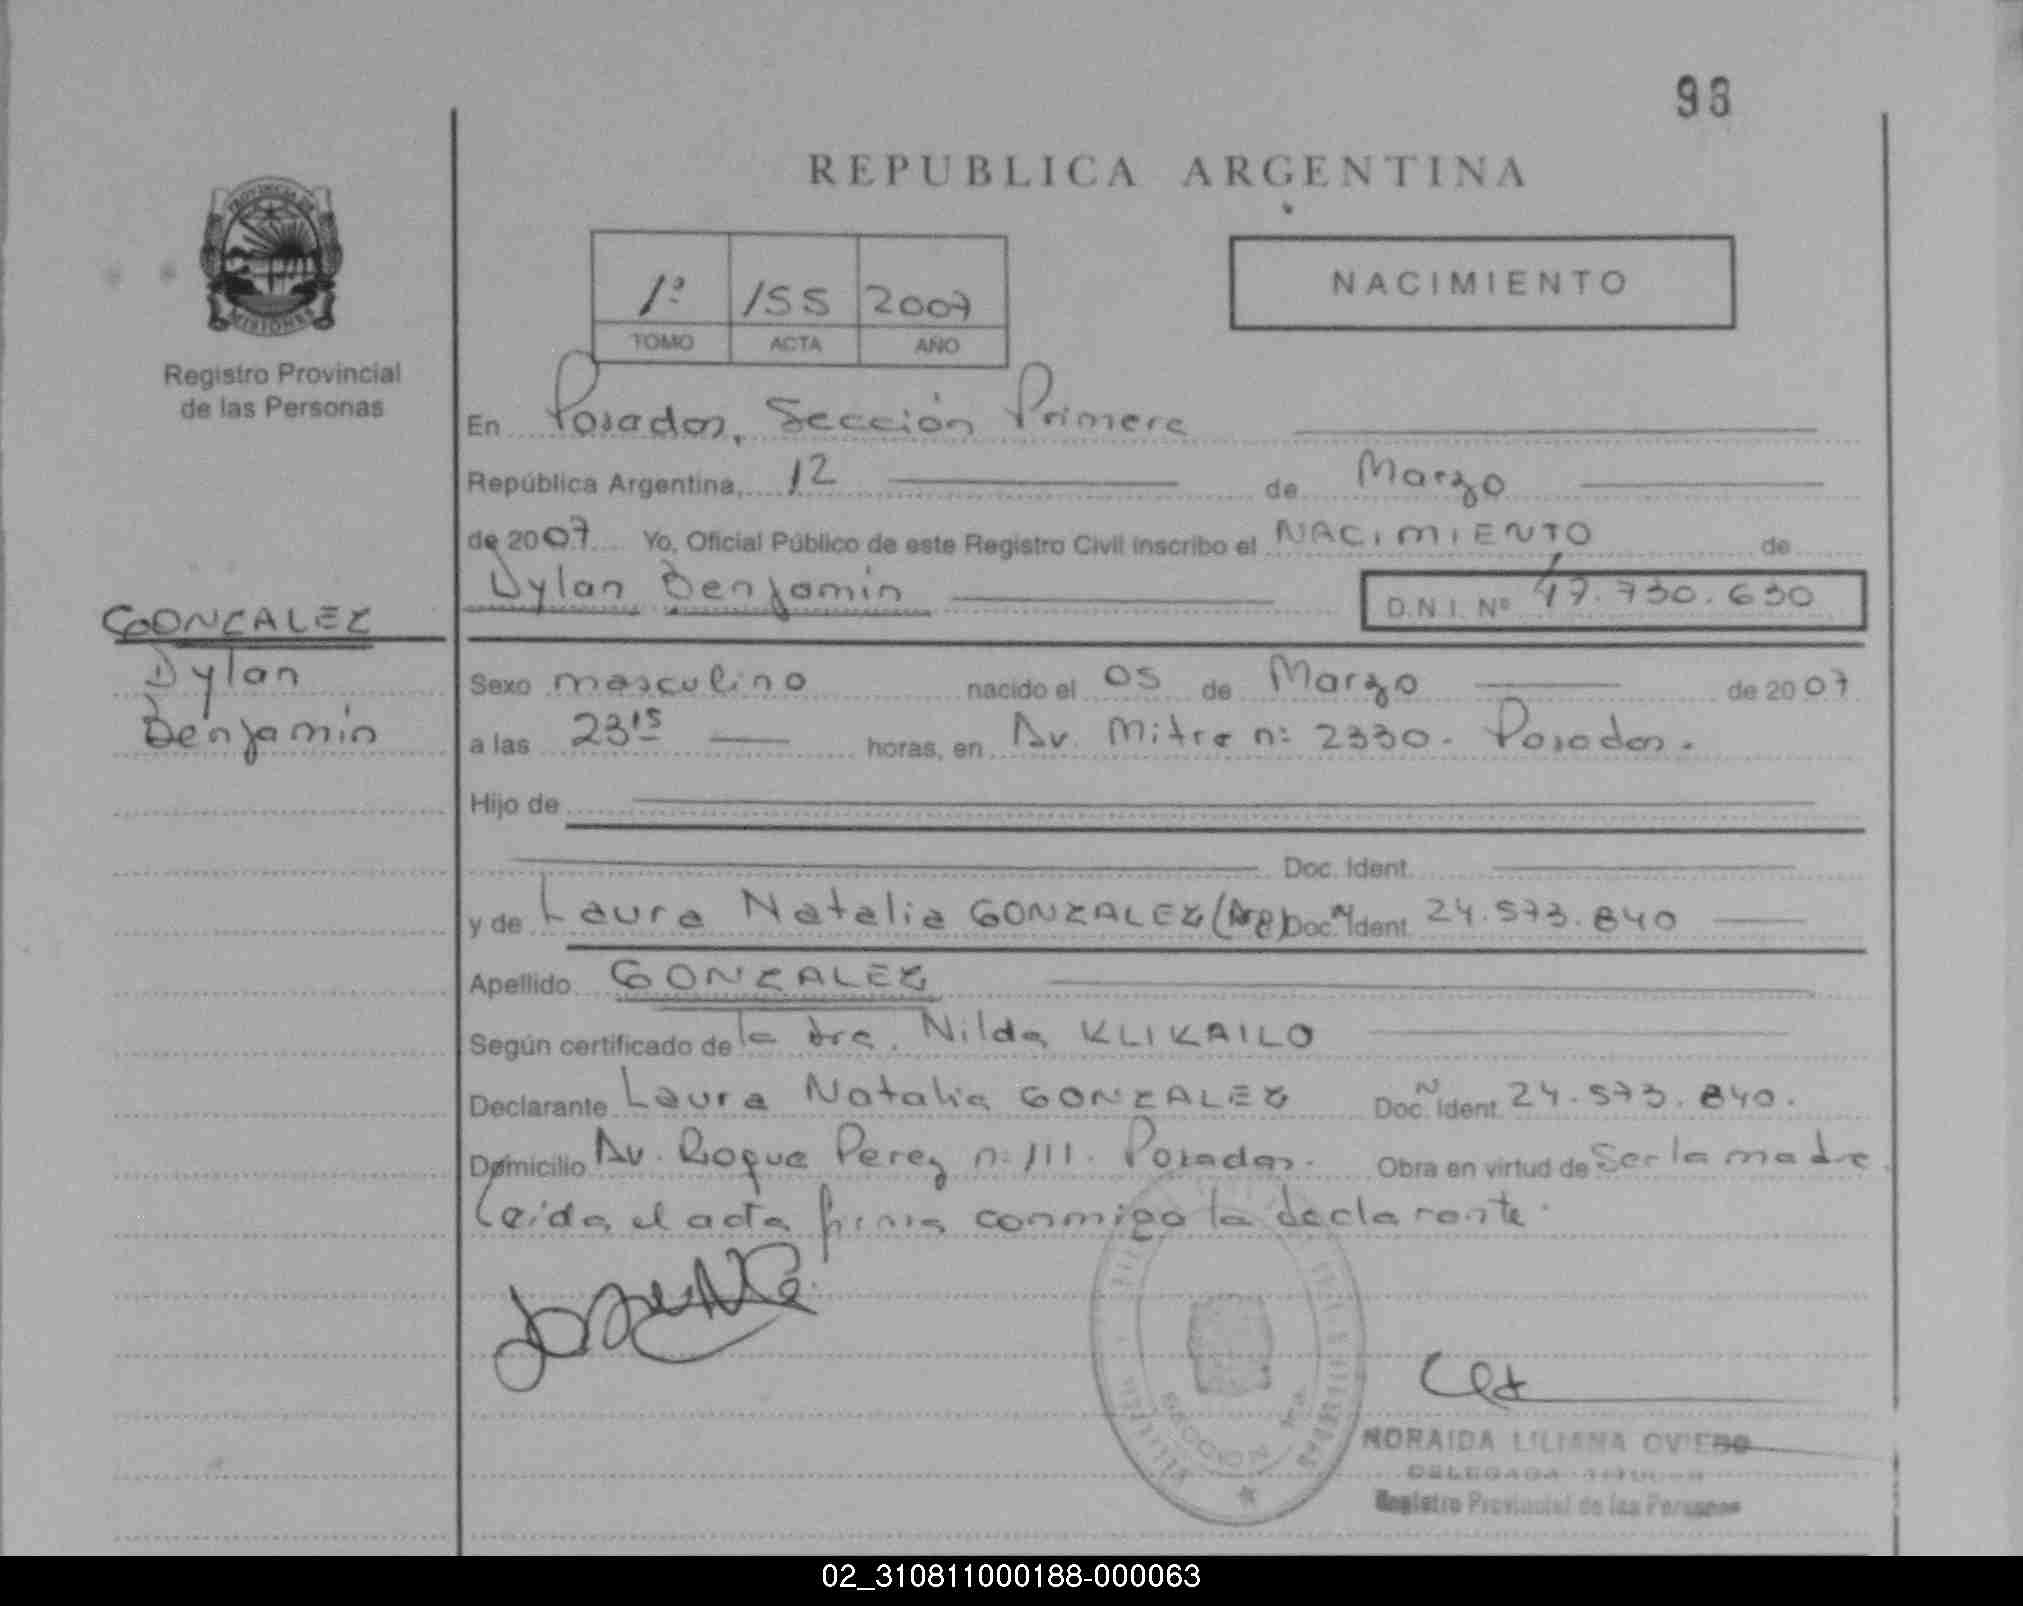 93
REPUBLICA ARGENTINA
PROVINCIA DE
MISIONES
Registro Provincial
de las Personas
1º 155 2007
TOMO ACTA AÑO
NACIMIENTO
En Posadas, Sección Primera
República Argentina, 12 de Marzo
de 2007 Yo, Oficial Público de este Registro Civil inscribo el NACIMIENTO de
Dylan Benjamín D.N.I. Nº 47.730.630
GONZALEZ
Dylan
Benjamín
Sexo masculino nacido el 05 de Marzo de 2007
a las 23 15 horas, en Av. Mitre nº 2330. Posadas.
Hijo de
Doc. Ident.
y de Laura Natalia GONZALEZ (Arg) Doc. N Ident. 24.573.840
Apellido GONZALEZ
Según certificado de la dra. Nilda KLIKAILO
Declarante Laura Natalia GONZALEZ Doc. N Ident. 24.573.840.
Domicilio Av. Roque Perez nº 111. Posadas. Obra en virtud de Ser la madre.
Leída el acta firma conmigo la declarante.
NORAIDA LILIANA OVIEDO
DELEGADA TITULAR
Registro Provincial de las Personas
02_310811000188-000063